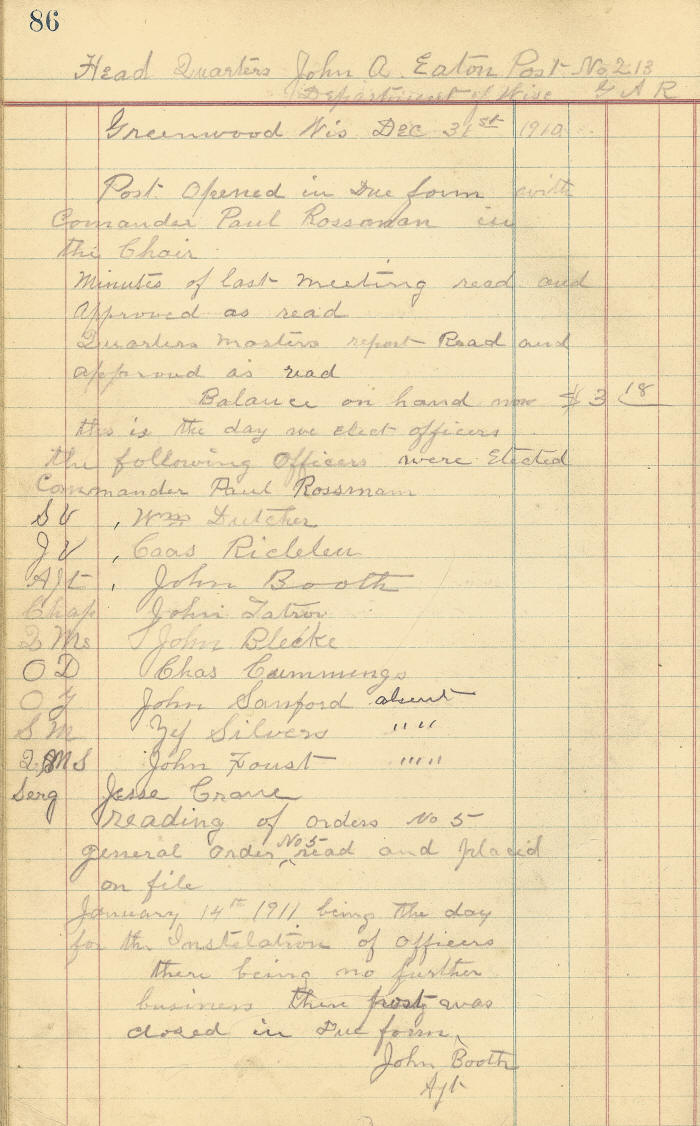 86
Head Quarters John A. Eaton Post No 213
Department of Wisc G A R
Greenwood Wis Dec 31st 1910
Post Opened in Due form with
Comander Paul Rossman in
the Chair
Minutes of last meeting read and
approved as read
Quarters Masters report Read and
approved as read
Balance on hand now $3 18
this is the day we elect officers
the following Officers were Elected
Commander Paul Rossmam
S V , Wm Dutcher
J V , Caas
Ajt , John Booth
Chap John Tatro
Q Ms John Blecke
O D Chas Cummings
O G John Sanford absent
S M Zy Silvers " "
Q M S John Foust " "
Serg Jesse Crane
reading of orders No 5
general order No 5 read and placid
on file
January 14th 1911 being the day
for the Instelation of officers
there being no further
business then post was
closed in Due form
John Booth
Ajt